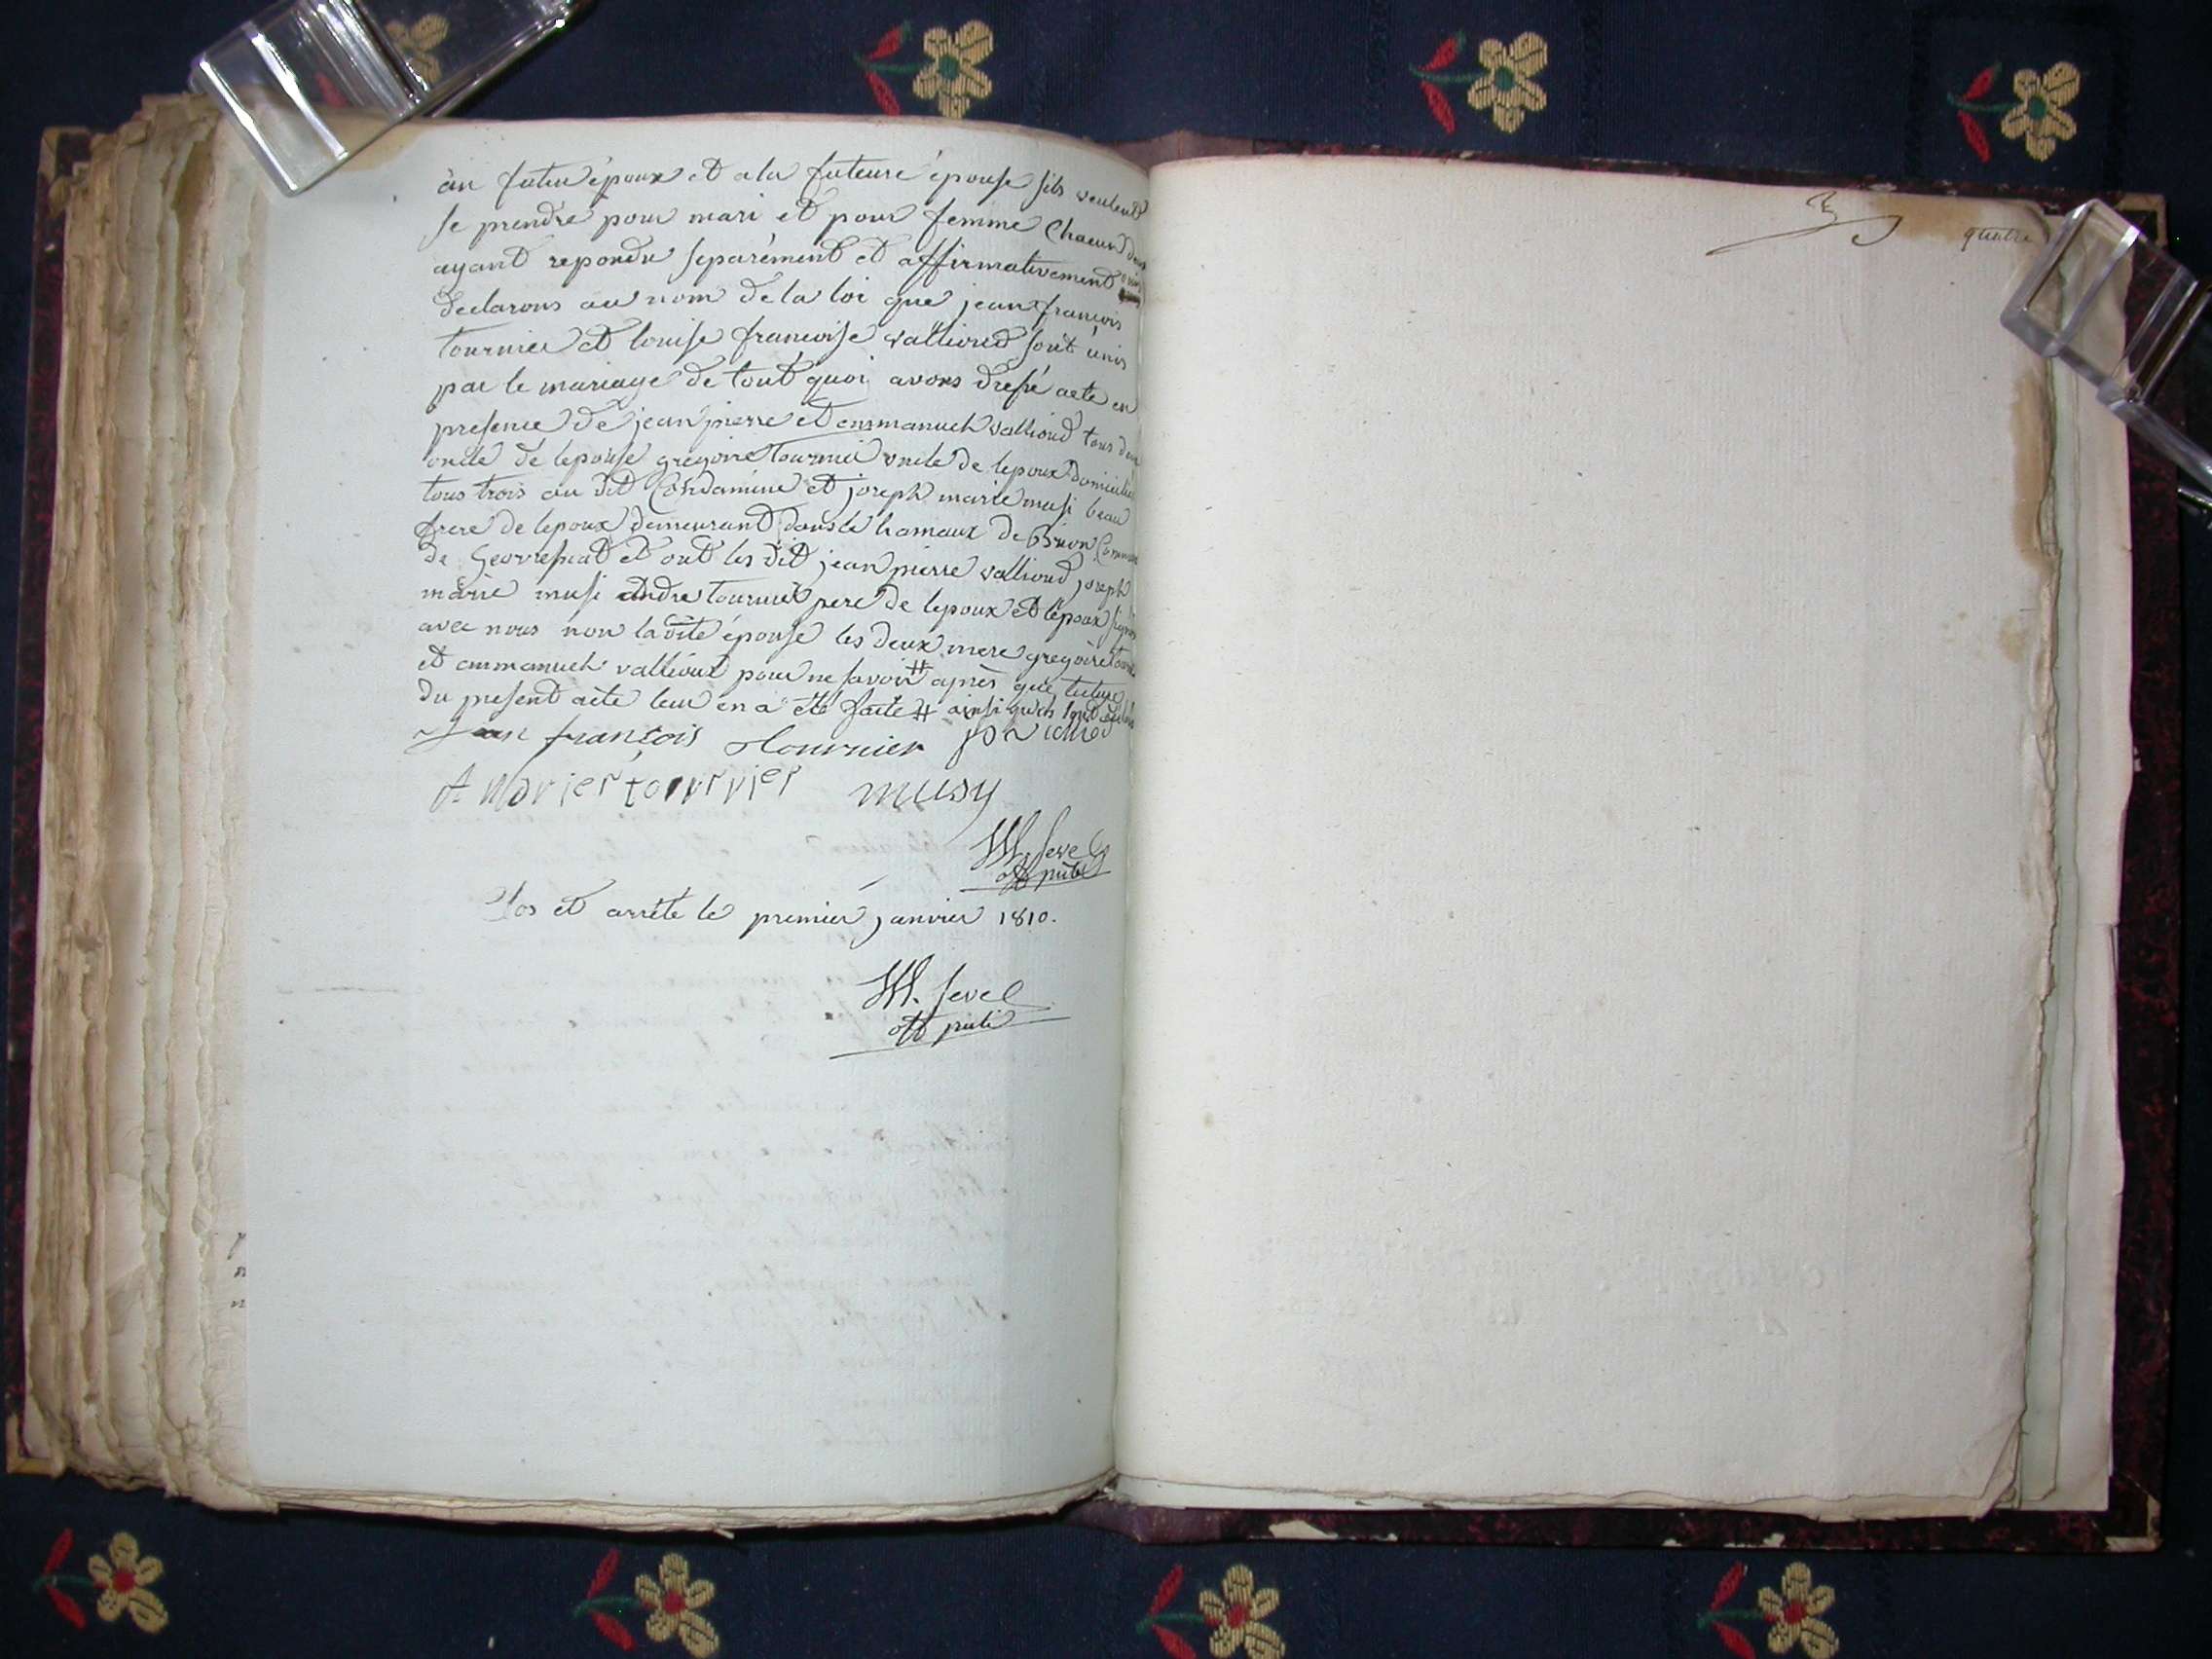 au futur époux et a la future épouse sils veulent
se prendre pour mari et pour femme Chacun deux
ayant repondu separément et affirmativement
declarons au nom de la loi que jean françois
tournier et louise francoise valliond sont unis
par le mariage de tout quoi avons dressé acte en
presence de jean pierre et emmanuel valliond tous deux
oncle de lepouse gregoire tournier oncle de lepoux domiciliés
tous trois au dit Condamine et joseph marie musi beau
frere de lepoux demeurant dans le hamaux de Brion Commune
de Geovresiat et ont les dit jean pierre valliond joseph
marie musi andre tournier pere de lepoux et lépoux signés
avec nous non la dite épouse les deux mere gregoire tournier
et emmanuel valliond pour ne savoir # après que lecture
du present acte leur en a été faite # ainsi quils lont
Jean françois tournier
Andrier tournier musy
M. Sevel
off public
Clos et arrêté le premier janvier 1810.
M. Sevel
off public
quatre